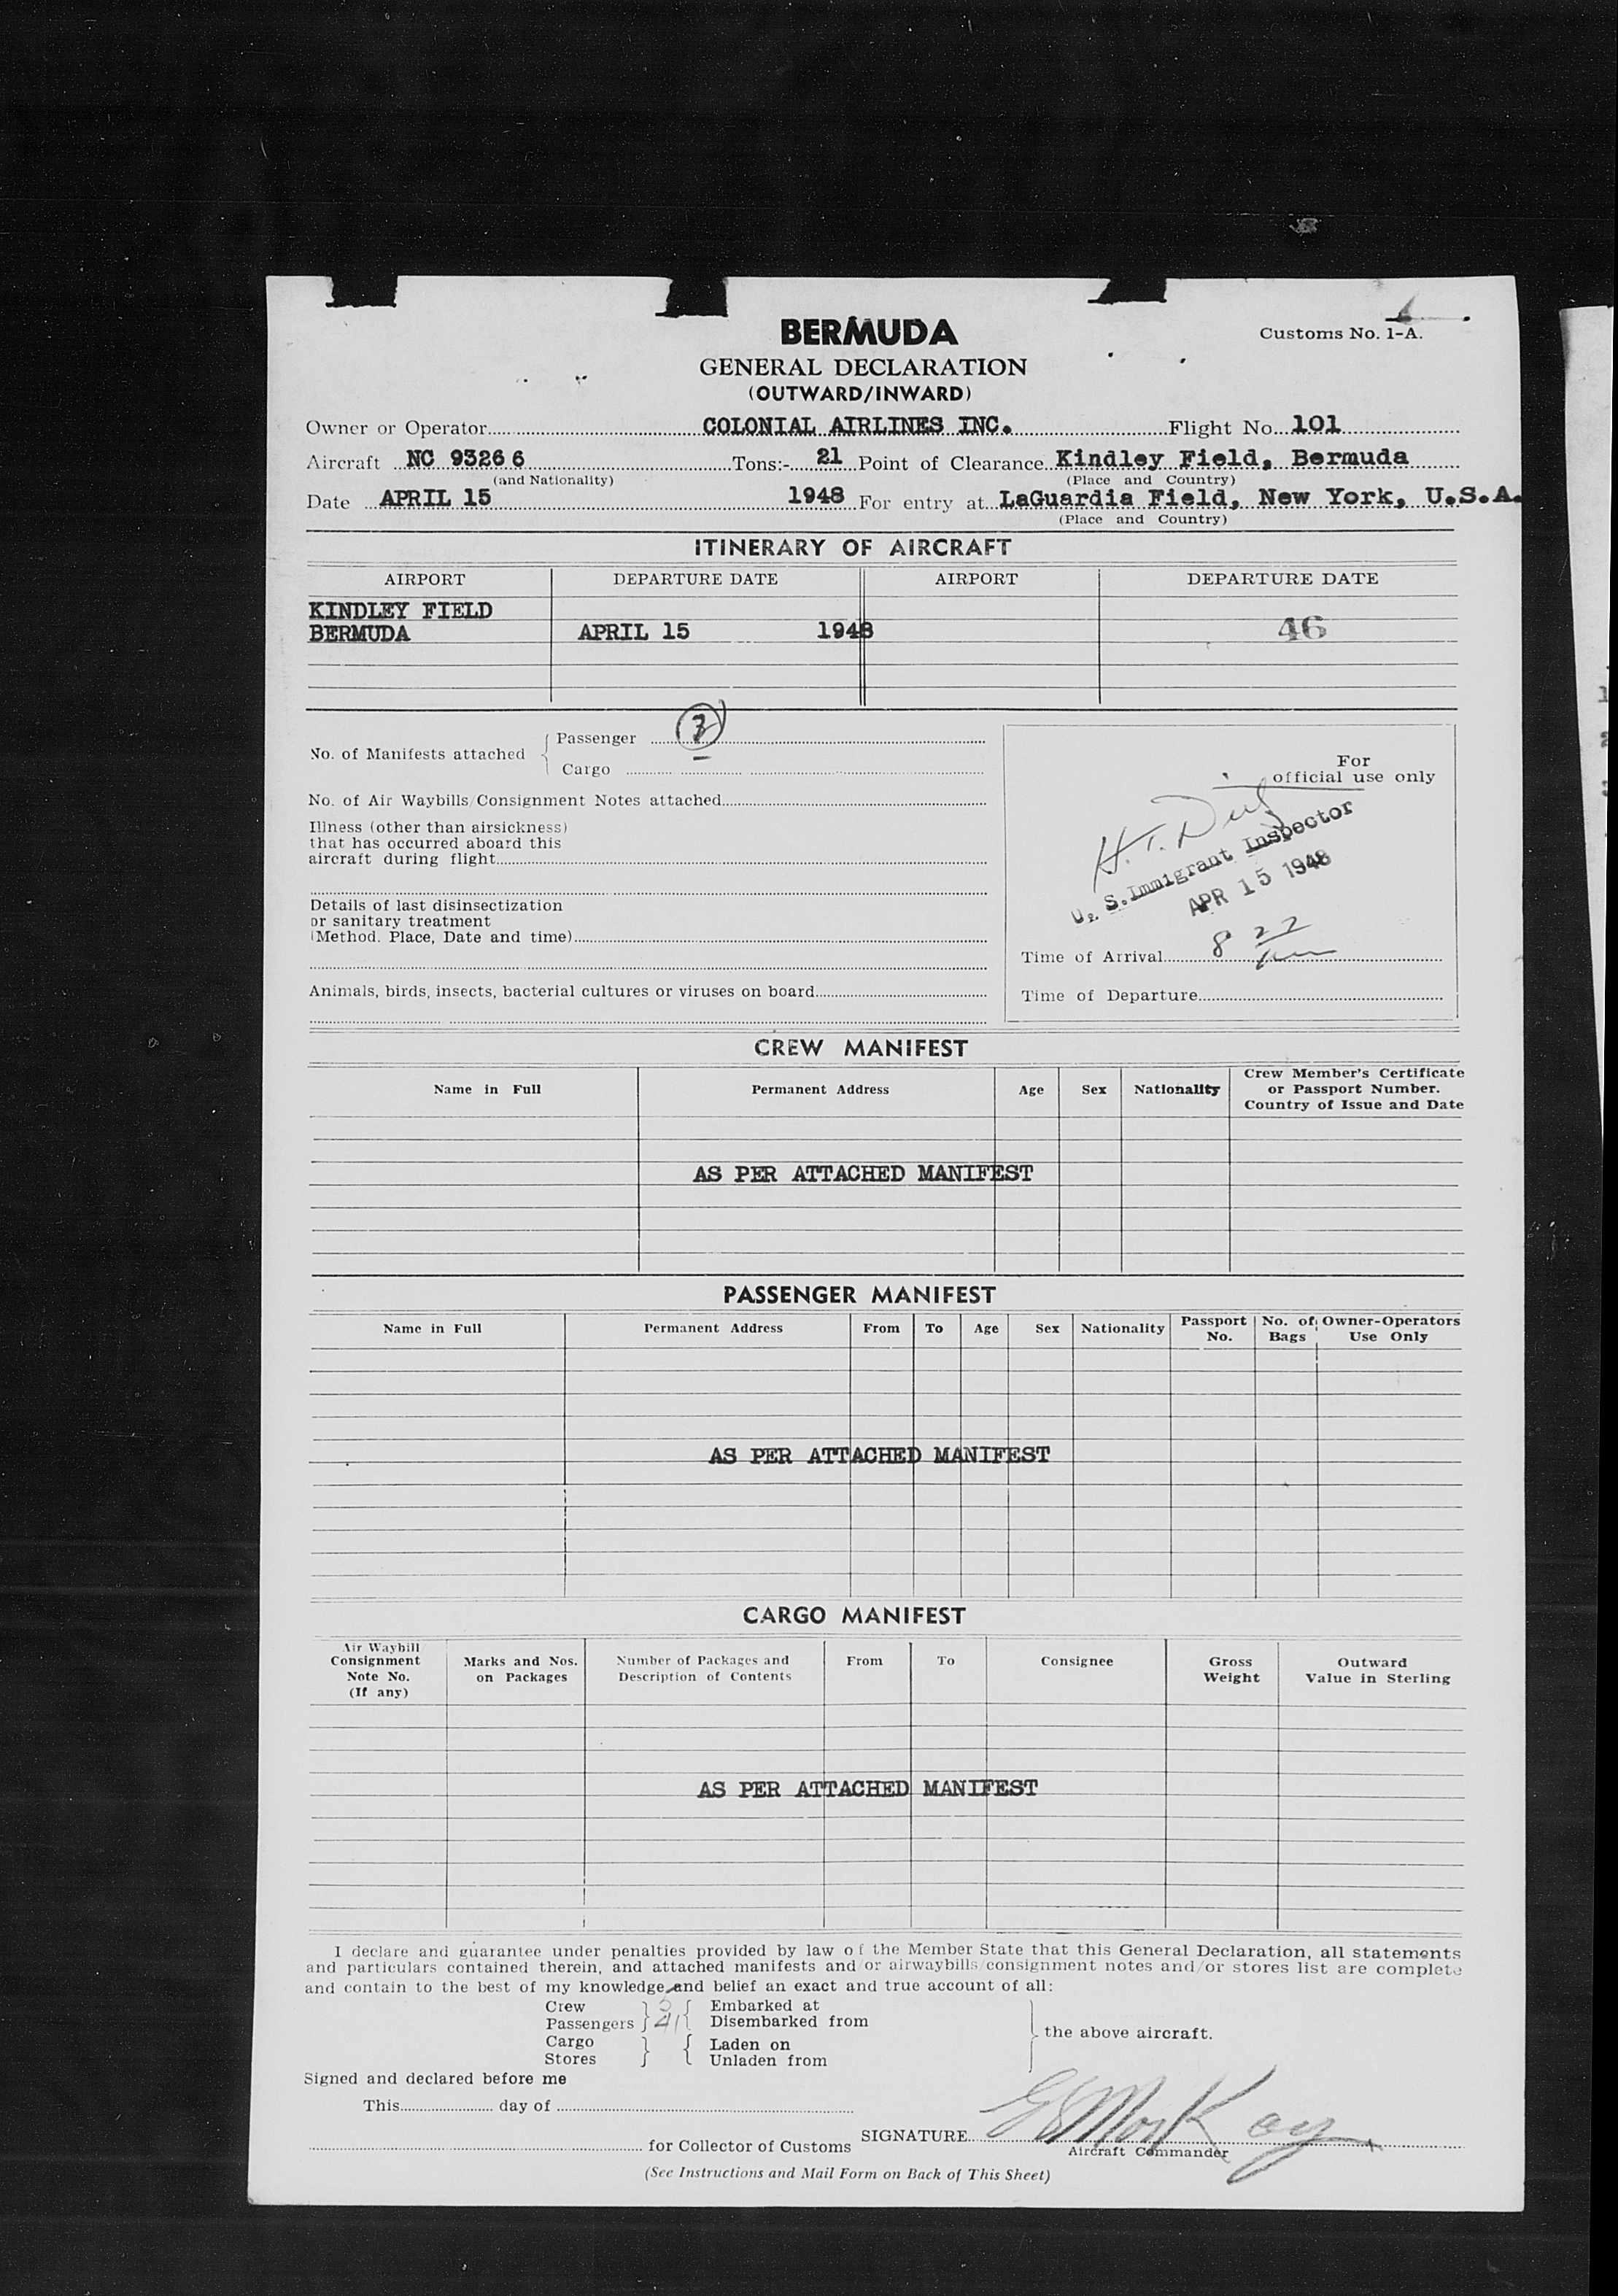 BERMUDA
Customs No. 1-A.
GENERAL DECLARATION
(OUTWARD/INWARD)
Owner or Operator COLONIAL AIRLINES INC. Flight No. 101
Aircraft NC 93266 Tons:- 21 Point of Clearance Kindley Field, Bermuda
(and Nationality) (Place and Country)
Date APRIL 15 1948 For entry at LaGuardia Field, New York, U.S.A.
(Place and Country)
ITINERARY OF AIRCRAFT
AIRPORT DEPARTURE DATE AIRPORT DEPARTURE DATE
KINDLEY FIELD
BERMUDA APRIL 15 1948 46
No. of Manifests attached
Passenger
Cargo
No. of Air Waybills/Consignment Notes attached
Illness (other than airsickness)
that has occurred aboard this
aircraft during flight
Details of last disinsectization
or sanitary treatment
(Method. Place, Date and time)
Animals, birds, insects, bacterial cultures or viruses on board
For
official use only
H.T.
U. S. Immigrant Inspector
APR 15 1948
Time of Arrival 8 22
Time of Departure
CREW MANIFEST
Name in Full Permanent Address Age Sex Nationality Crew Member's Certificate
or Passport Number.
Country of Issue and Date
AS PER ATTACHED MANIFEST
PASSENGER MANIFEST
Name in Full Permanent Address From To Age Sex Nationality Passport No. No. of Bags Owner-Operators Use Only
AS PER ATTACHED MANIFEST
CARGO MANIFEST
Air Waybill
Consignment
Note No.
(If any)
Marks and Nos.
on Packages
Number of Packages and
Description of Contents
From To Consignee
Gross
Weight
Outward
Value in Sterling
AS PER ATTACHED MANIFEST
I declare and guarantee under penalties provided by law of the Member State that this General Declaration, all statements
and particulars contained therein, and attached manifests and/or airwaybills/consignment notes and/or stores list are complete
and contain to the best of my knowledge and belief an exact and true account of all:
Crew Embarked at
Passengers 41 Disembarked from
Cargo Laden on
Stores Unladen from
the above aircraft.
Signed and declared before me
This day of
for Collector of Customs
SIGNATURE
Aircraft Commander
(See Instructions and Mail Form on Back of This Sheet)